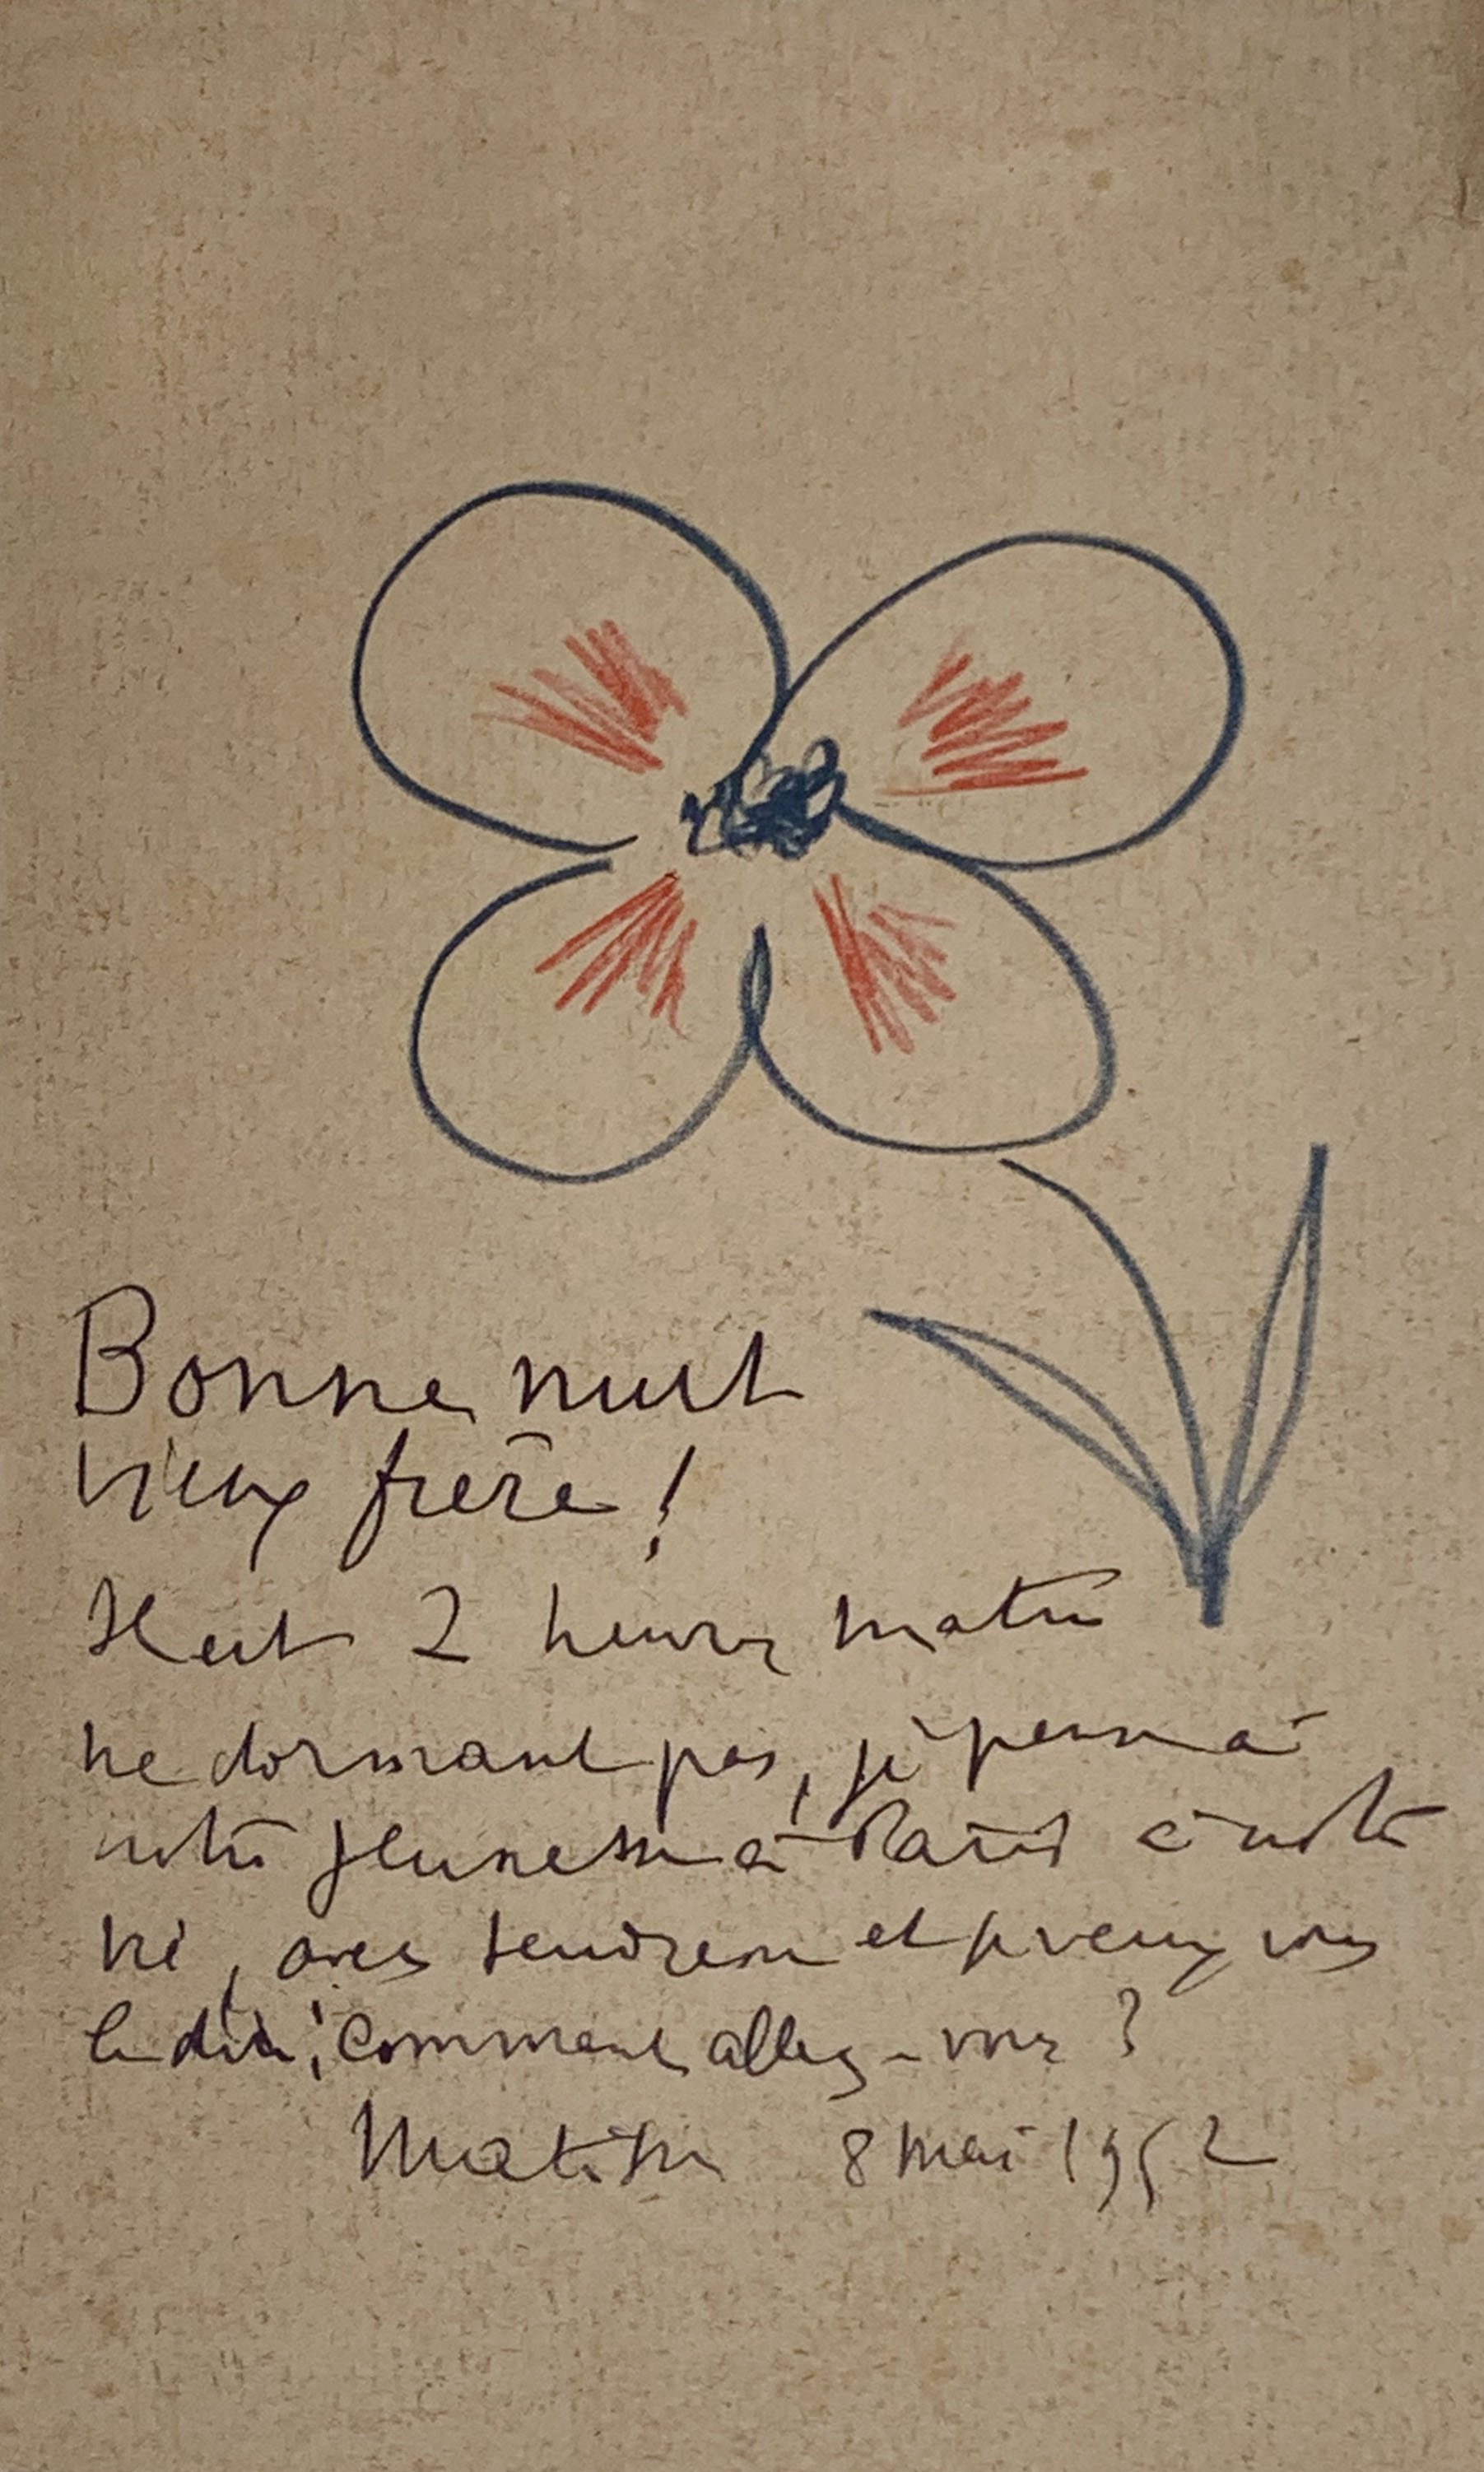 Bonne nuit
vieux frère !
Il est 2 heures matin
ne dormant pas, je pense à
notre jeunesse à Paris à notre
, avec tendresse et je veux vous
le dire ; comment allez-vous ?
Matisse 8 mai 1952